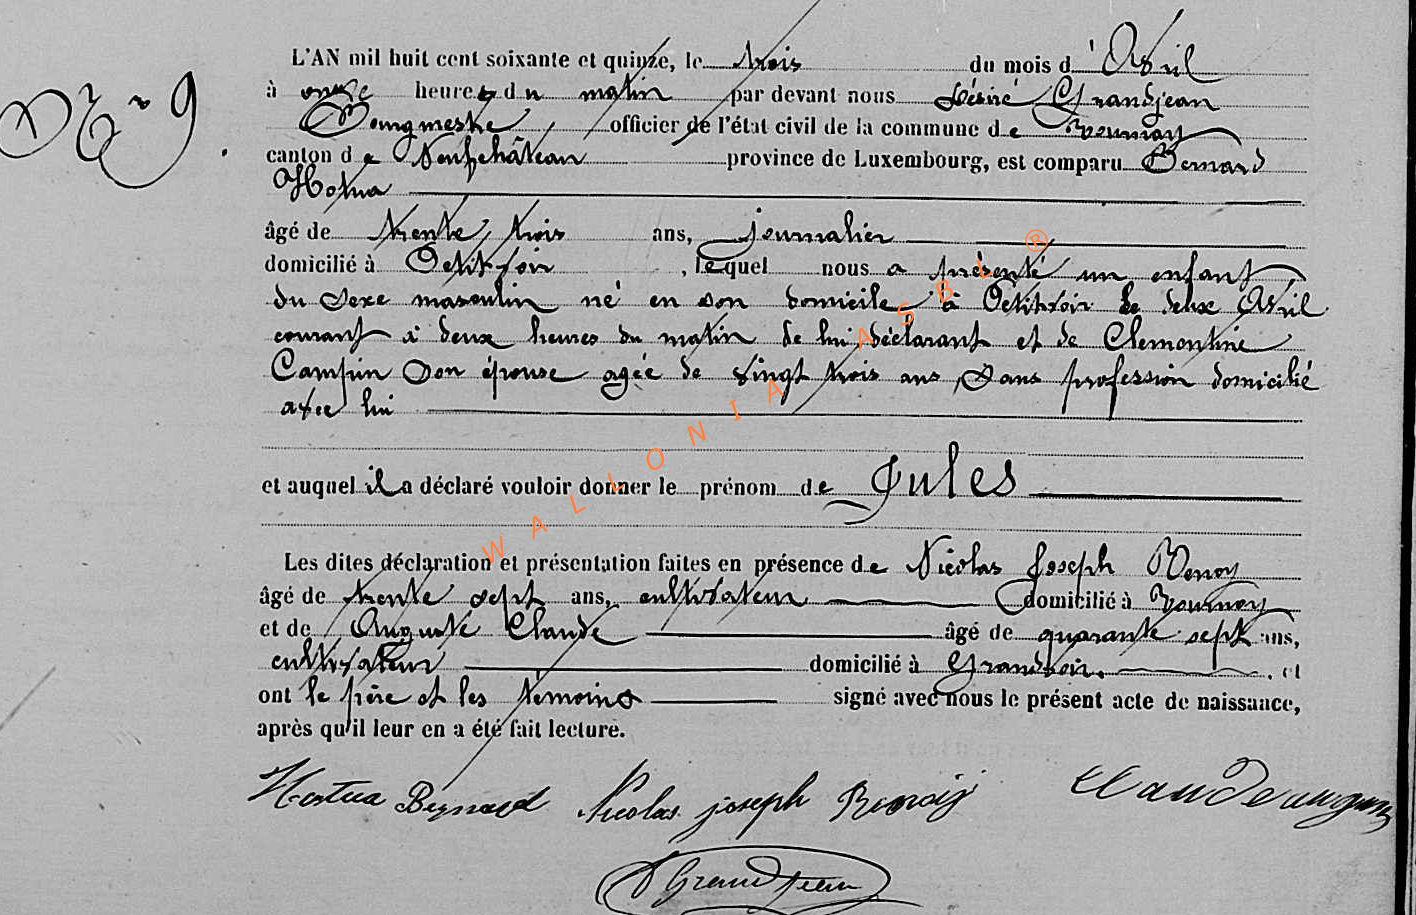 N° 9
L'AN mil huit cent soixante et quinze, le trois du mois d' Avril
à onze heures du matin par devant nous Désiré Grandjean
Bourgmestre, officier de l'état civil de la commune de Tournay
canton de Neufchâteau province de Luxembourg, est comparu Bernard
Hotua
âgé de trente trois ans, journalier
domicilié à Petitvoir, lequel nous a présenté un enfant
du sexe masculin né en son domicile à Petitvoir le deux Avril
courant à deux heures du matin de lui déclarant et de Clementine
Campin son épouse agée de vingt trois ans, sans profession domicilié
avec lui
et auquel il a déclaré vouloir donner le prénom de Jules
Les dites déclaration et présentation faites en présence de Nicolas Joseph
âgé de trente sept ans, cultivateur domicilié à Tournay
et de Auguste Claude âgé de quarante sept ans,
cultivateur domicilié à Grandvoir. et
ont le père et les témoins signé avec nous le présent acte de naissance,
après qu'il leur en a été fait lecture.
Hostua Bernard Nicolas joseph Claude
D Grandjean
WALLONIA ASBL ®